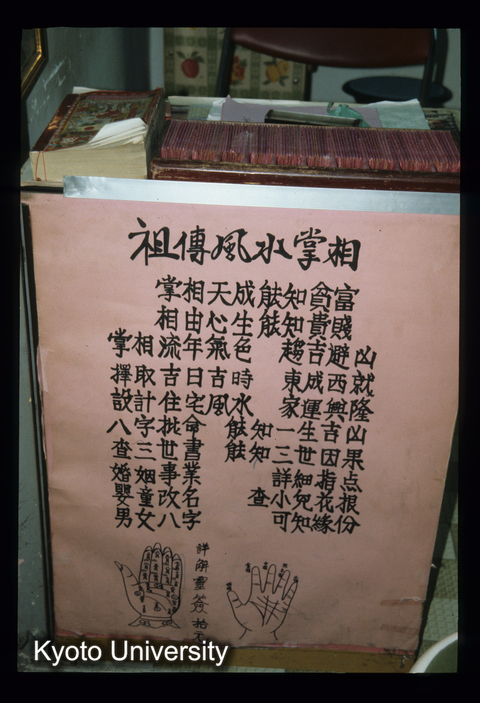 祖傳風水掌相
掌相天成能知貧富
相由心生能知貴賤
掌相流年氣色趨吉避凶
擇取吉日吉時東成西就
設計住宅風水家運興隆
八字批命能知一生吉凶
查三世書能知三世因果
婚姻事業詳細指点
嬰童改名查小兒花根
男女八字可知緣份
詳解靈簽拾
Kyoto University